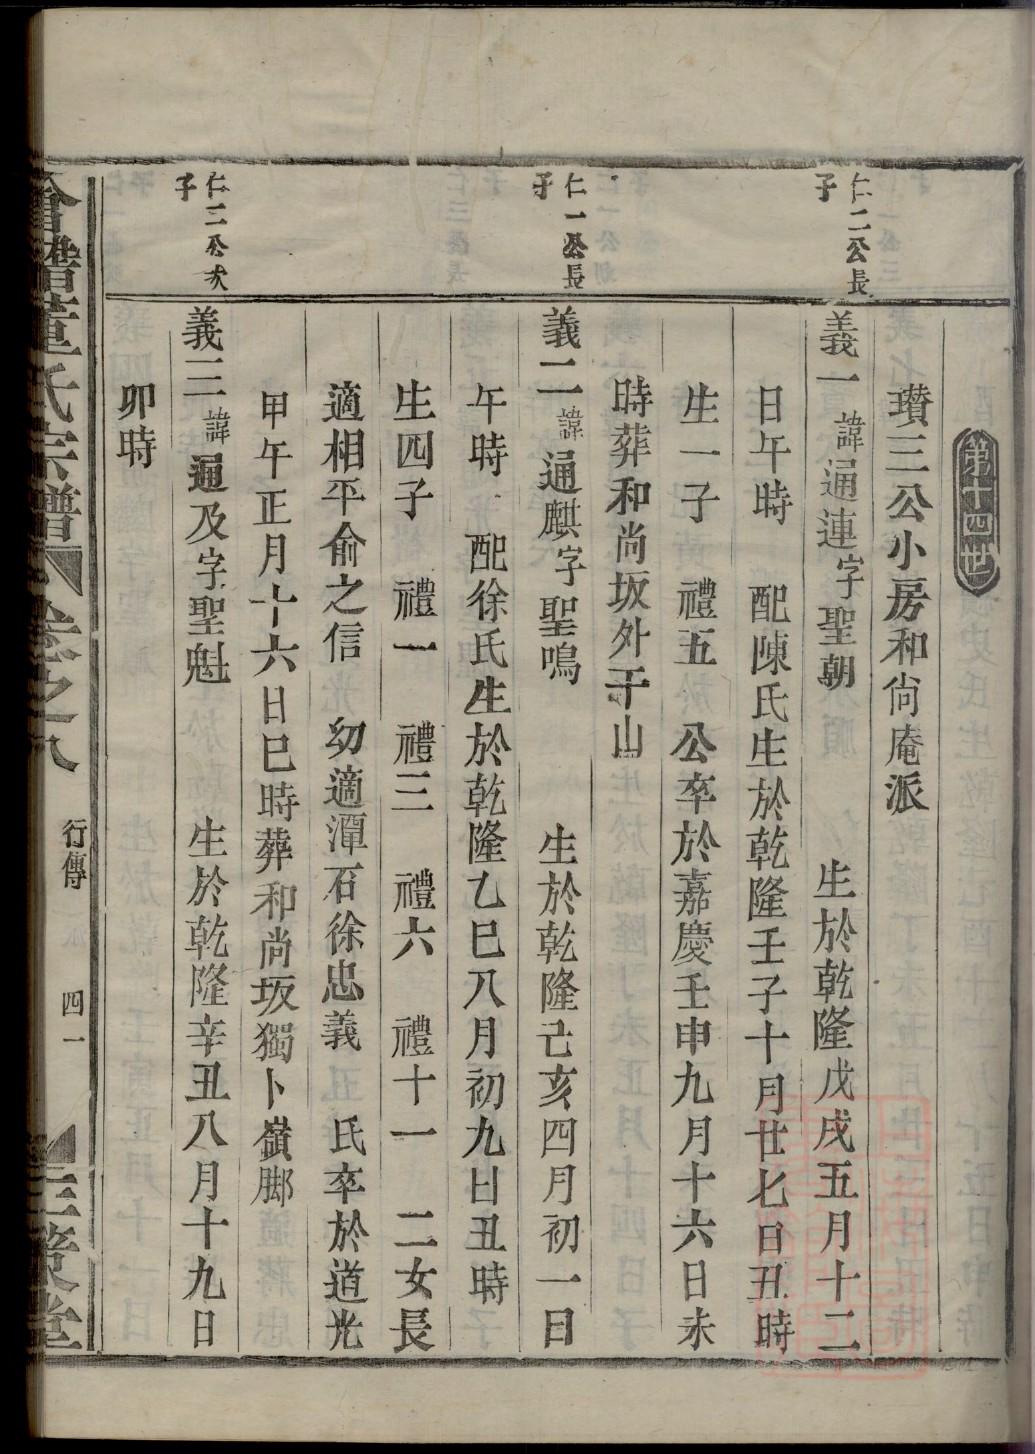 第十四世
瓚三公小房和尙庵派
仁二公長
子
義一諱通連字聖朝 生於乾隆戊戌五月十二
日午時 配陳氏生於乾隆壬子十月廿七日丑時
生一子 禮五 公卒於嘉慶壬申九月十六日未
時葬和尚坂外于山
仁一公長
子
義二諱通麒字聖鳴 生於乾隆己亥四月初一日
午時 配徐氏生於乾隆乙巳八月初九日丑時
生四子 禮一 禮三 禮六 禮十一 二女長
適相平俞之信 幼適潭石徐忠義 氏卒於道光
甲午正月十六日巳時葬和尚坂獨卜嶺脚
仁二公次
子
義三諱通及字聖魁 生於乾隆辛丑八月十九日
卯時
會稽董氏宗譜 卷之八 行傳 四一 三策堂